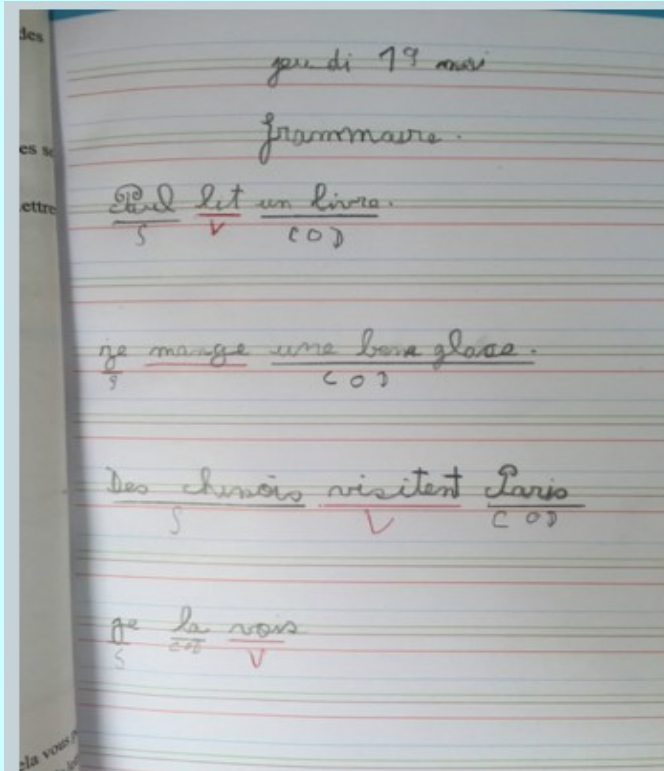 des
es se
ettre
jeudi 19 mai
Grammaire.
Paul lit un livre.
S V COD
je mange une bone glace.
S COD
Des chinois visitent Paris
S V COD
je la vois
S COD V
ela vous